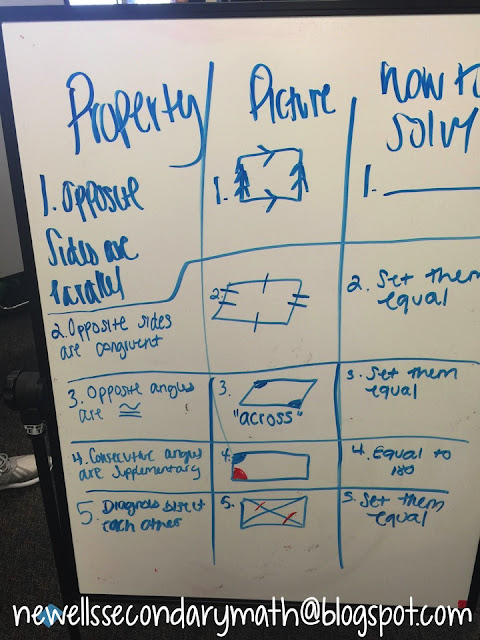 Property
Picture
How to
solv
1. Opposite
Sides are
Parallel
1.
1.
2. Opposite sides
are congruent
2.
2. Set them
equal
3. Opposite angles
are ≅
3.
"across"
3. Set them
equal
4. Consecutive angles
are supplementary
4.
4. Equal to
180
5. Diagonals bisect
each other
5.
5. Set them
equal
newellssecondarymath@blogspot.com